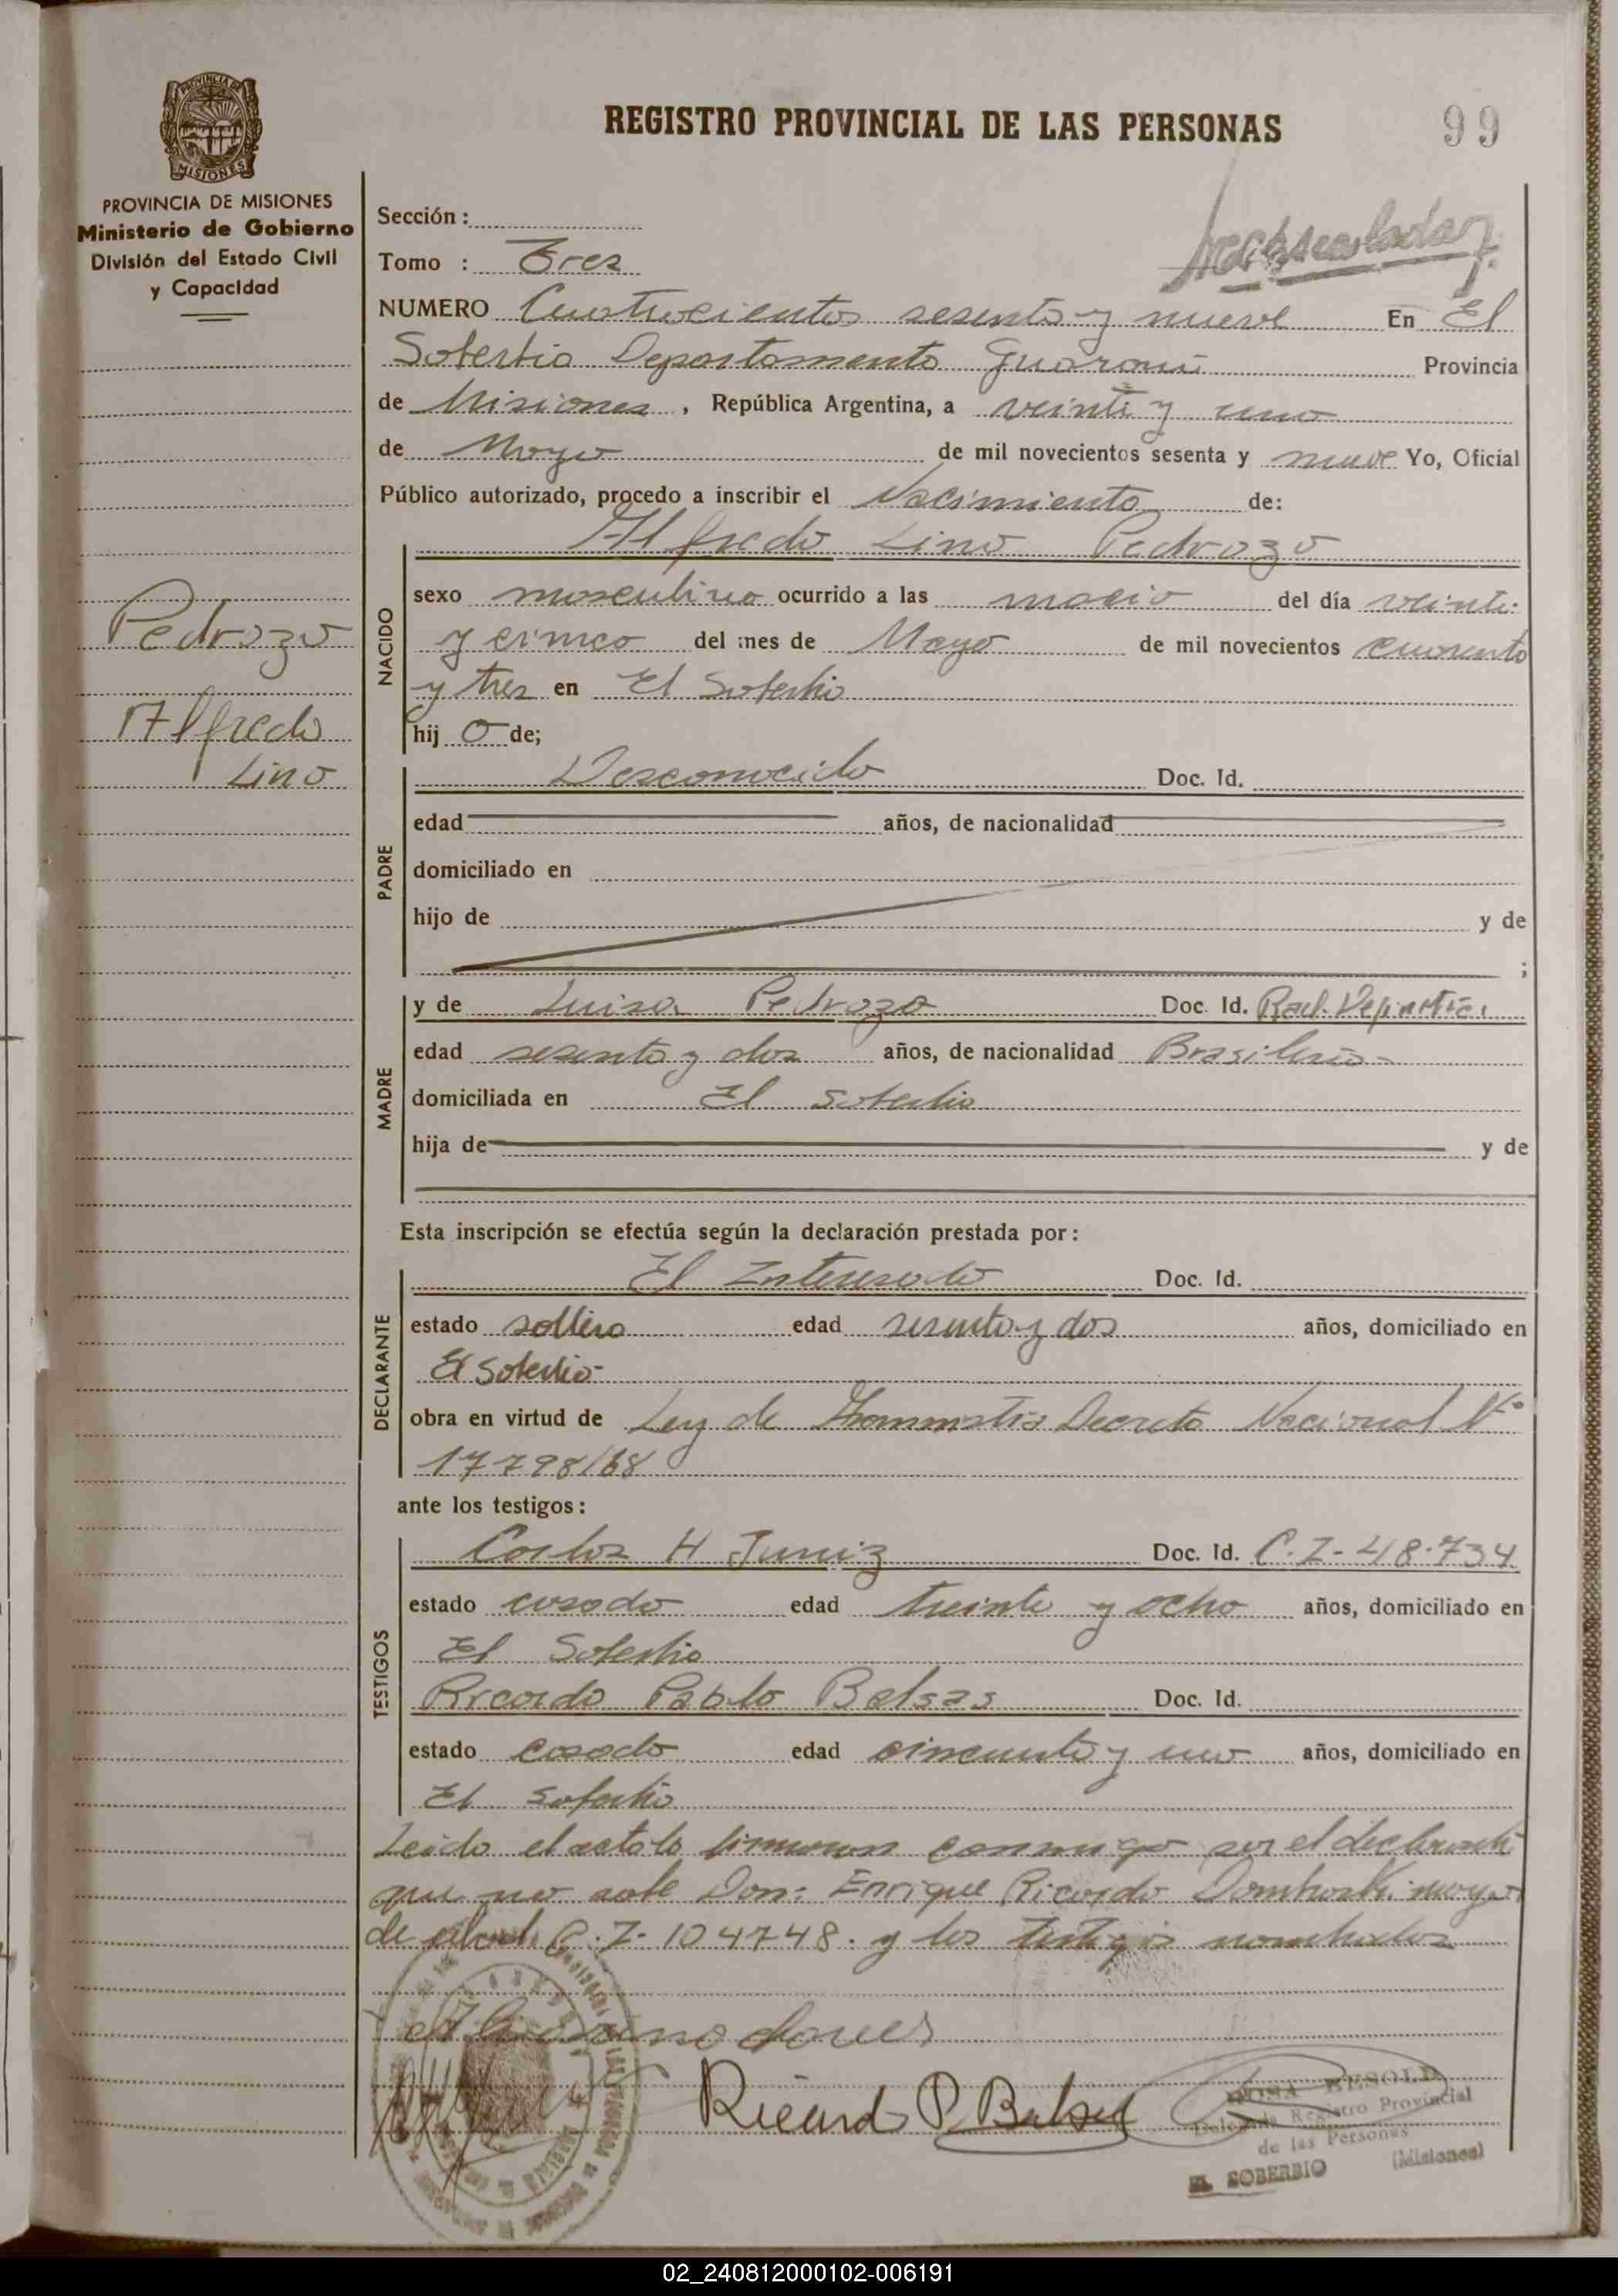 REGISTRO PROVINCIAL DE LAS PERSONAS
99
PROVINCIA DE MISIONES
Ministerio de Gobierno
División del Estado Civil
y Capacidad
Sección:
Tomo : Tres
NUMERO Cuatrocientos sesenta y nueve En El
Soberbio Departamento Guaraní Provincia
de Misiones, República Argentina, a veinti y uno
de Mayo de mil novecientos sesenta y nueve Yo, Oficial
Público autorizado, procedo a inscribir el Nacimiento de:
Alfredo Lino Pedrozo
Pedrozo
Alfredo
Lino
NACIDO
sexo masculino ocurrido a las del día veinti
y cinco del mes de Mayo de mil novecientos cuarenta
y tres en El Soberbio
hij o de;
PADRE
Desconocido Doc. Id.
edad años, de nacionalidad
domiciliado en
hijo de y de
;
MADRE
y de Luisa Pedrozo Doc. Id.
edad sesenta y dos años, de nacionalidad Brasilera
domiciliada en El Soberbio
hija de y de
Esta inscripción se efectúa según la declaración prestada por:
DECLARANTE
El Interesado Doc. Id.
estado soltero edad sesenta y dos años, domiciliado en
El Soberbio
obra en virtud de Ley de Decreto Nacional N°
17798/68
ante los testigos:
TESTIGOS
Carlos H Doc. Id. C.I-48.734
estado casado edad treinta y ocho años, domiciliado en
El Soberbio
Ricardo Pablo Belsas Doc. Id.
estado casado edad cincuenta y uno años, domiciliado en
El Soberbio
Leido el acta lo firmaron conmigo por el declarante
que no sabe Don: Enrique Ricardo mayor
de edad. C.I- 104748. y los testigos nombrados
Ricardo P. Belsas
ROSA BESOLD
Delegada Registro Provincial
de las Personas
EL SOBERBIO (Misiones)
02_240812000102-006191